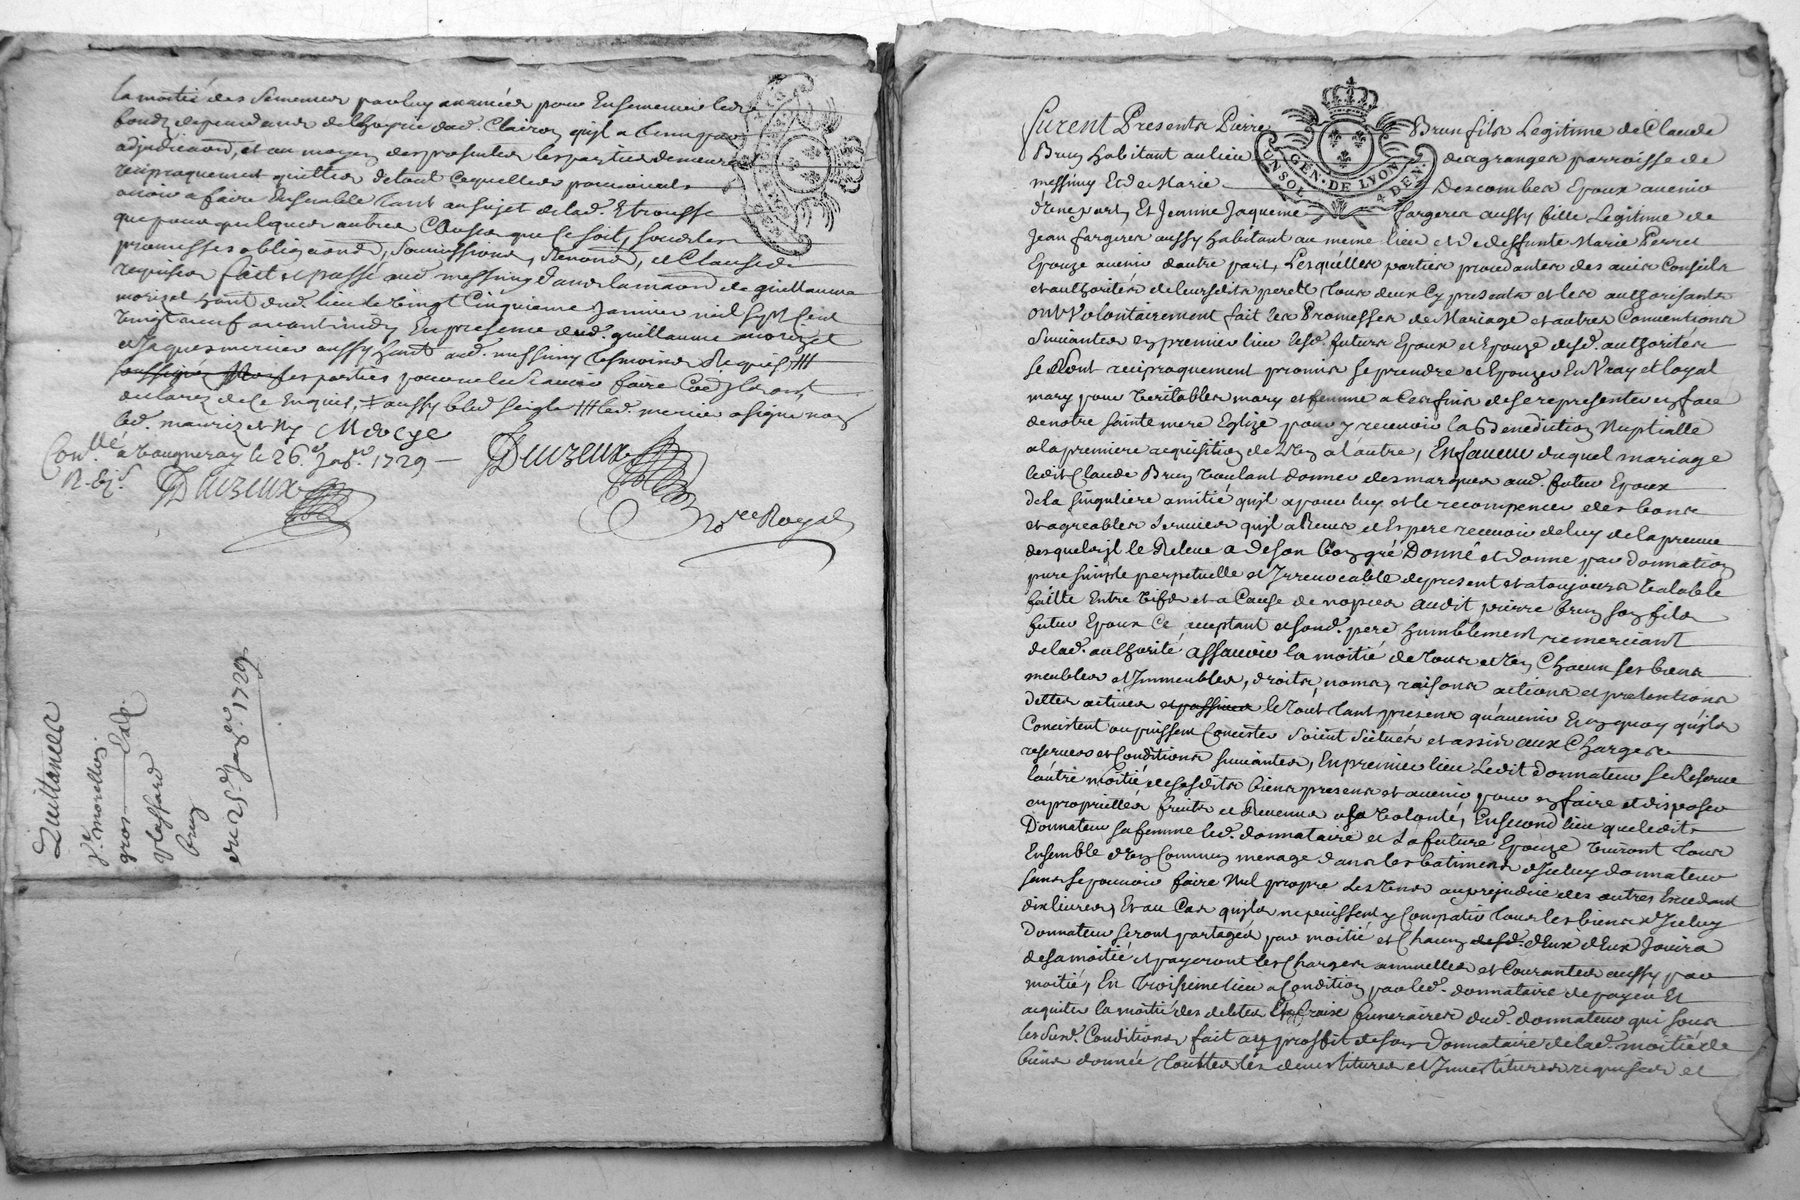 la moitié des semences par luy avancées pour Ensemencer led.
fonds dependans de l'hoyrie dud. Clairon quil a tenu par
adjudicaon, et au moyen des presentes les parties demeurent
reciproquement quittes de tout ce quelles pouvoient
avoir a faire Ensemble tant au sujet de lad.
que pour quelque autre Cause que ce soit, sous les
promesses obligaons, soumissions, Renons, et Clauses
requises fait et passé aud. messimy dans la maon de guillaume
morizet hant dud. lieu le vingt Cinquieme Janvier mil sept cent
vingt neuf avant midy En presence dud. guillaume morizet
et Jaques mercier aussy hant aud. messimy tesmoins Requis #
les parties pour ne le scavoir faire Comme ils ont
declarez de ce Enquis, aussy bled seigle # led. mercier a signé non
led. maurizet
Con.llé a Vaugneray le 26.e Jav.r 1729
Duzeux
Duzeux
No.re Royal
Quittances
gros
du 25.e Janv.er 1729
Furent Presents Pierre Brun fils Legitime de Claude
Brun habitant au lieu des granges parroisse de
messimy Et de Marie Descombes Epoux avenir
d'une part, Et Jeanne Jaqueme fargeres aussy fille Legitime de
Jean fargeres aussy habitant au meme lieu et de deffunte Marie Perret
Epouze avenir dautre part, Lesquelles parties procedantes des avis Conseils
et authorités de leursdits peres tous deux Cy presents et les authorisants
ont Volontairement fait les Promesses de Mariage et autres Conventions
Suivantes en premier lieu lesd. futurs Epoux et Epouze desd. authorités
se sont reciproquement promis se prendre et Epouzer En Vray et loyal
mary pour veritables mary et femme a ces fins de se representer en face
de notre sainte mere Eglize pour y recevoir la Benediction Nuptialle
a la premiere requisition de l'un a l'autre, En faveur duquel mariage
ledit Claude Brun voulant donner des marques aud. futur Epoux
de la singuliere amitié quil a pour luy et le recompencer des bons
et agreables services quil a Receu et Espere recevoir de luy de la preuve
desquels il le Releve a de son bon gré Donné et donne par donnation
pure simple perpetuelle et Irrevocable de present et a toujours valable
faitte Entre vifs et a Cause de nopces audit pierre brun son fils
futur Epoux Ce acceptant et sond. pere humblement remerciant
de lad. authorité assavoir la moitié de tous et Un Chacun ses biens
meubles et Immeubles, droits, noms, raisons actions et pretentions
dettes actives et passives le tout tant presens qu'avenir En quoy quils
Concistent ou puissent Concister soient scitués et assis aux Charges
reserves et Conditions suivantes, En premier lieu Ledit donnateur se Reserve
l'autre moitié de sesdits biens presens et avenir pour en faire et disposer
en proprietés fruits et Revenus a sa Volonté, En second lieu que ledit
Donnateur sa femme led. donnataire et La future Epouze vivront tous
Ensemble d'Un Commun menage dans les batiments d'Iceluy donnateur
sans se pouvoir faire Nul propre Les Uns au prejudice des autres Excedant
dix livres, Et au Cas quils ne puissent y Compatir tous les biens d'Iceluy
Donnateur seront partagés par moitié et Chacun desd. deux d'Eux Jouira
de sa moitié et payeront les Charges annuelles et Courantes aussy par
moitié, En troisieme lieu a Condition par led. donnataire de payer Et
acquiter la moitié des debtes Et fraix funeraires dud. donnateur qui sous
lesd. Conditions fait au proffit de son Donnataire de lad. moitié de
biens donnée touttes les devestitures et Investitures requises et